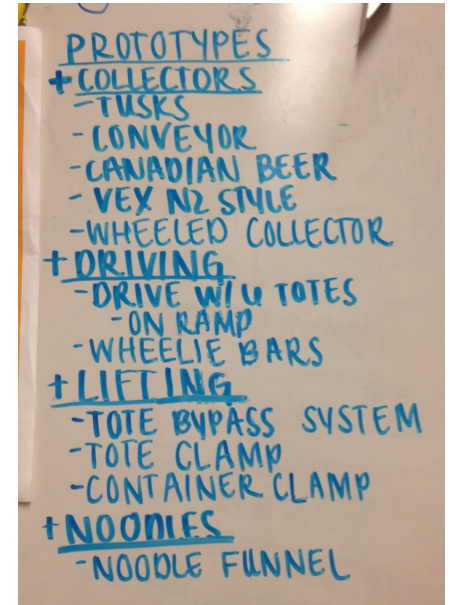 PROTOTYPES
+ COLLECTORS
- TUSKS
- CONVEYOR
- CANADIAN BEER
- VEX NZ STYLE
- WHEELED COLLECTOR
+ DRIVING
- DRIVE W/ 6 TOTES
- ON RAMP
- WHEELIE BARS
+ LIFTING
- TOTE BYPASS SYSTEM
- TOTE CLAMP
- CONTAINER CLAMP
+ NOODLES
- NOODLE FUNNEL